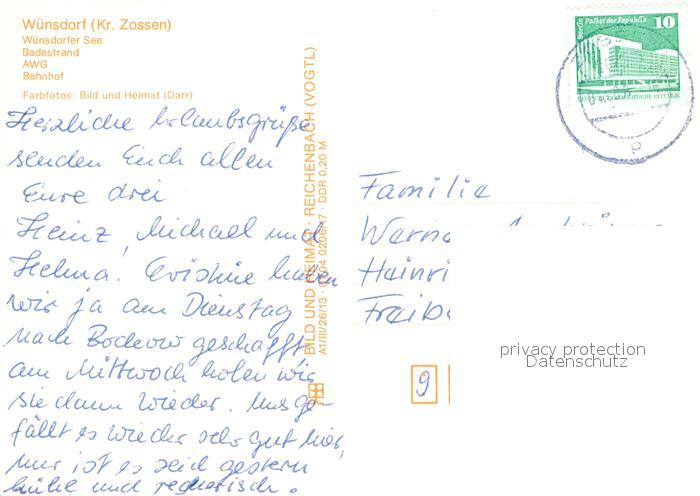 Wünsdorf (Kr. Zossen)
Wünsdorfer See
Badestrand
AWG
Bahnhof
Farbfotos: Bild und Heimat (Darr)
Herzliche Urlaubsgrüße
senden Euch allen
Eure drei
Heinz, Michael und
Helma. haben
wir ja am Dienstag
nach geschafft
am Mittwoch holen wir
sie dann wieder. Uns ge-
fällt es wieder sehr gut hier,
nur ist es seid gestern
kühl und regnerisch.
BILD UND HEIMAT · REICHENBACH (VOGTL)
A1/III/26/13 · 0206/17 · DDR 0,20 M
Berlin Palast der Republik 10
Familie
Werne
Heinri
Freib
9
privacy protection
Datenschutz